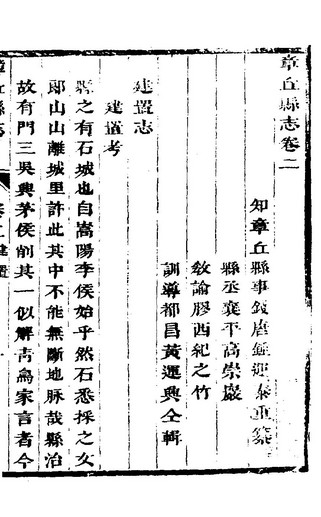 章丘縣志卷二
知章丘縣事錢唐鍾運泰重纂
縣丞襄平高崇巖
教諭膠西紀之竹
訓導都昌黃運興仝輯
建置志
建置考
縣之有石城也自嵩陽李侯始乎然石悉採之女
郎山山離城里許此其中不能無斷地脉哉縣治
故有門三吳興茅侯削其一似解青烏家言者今
章丘縣志